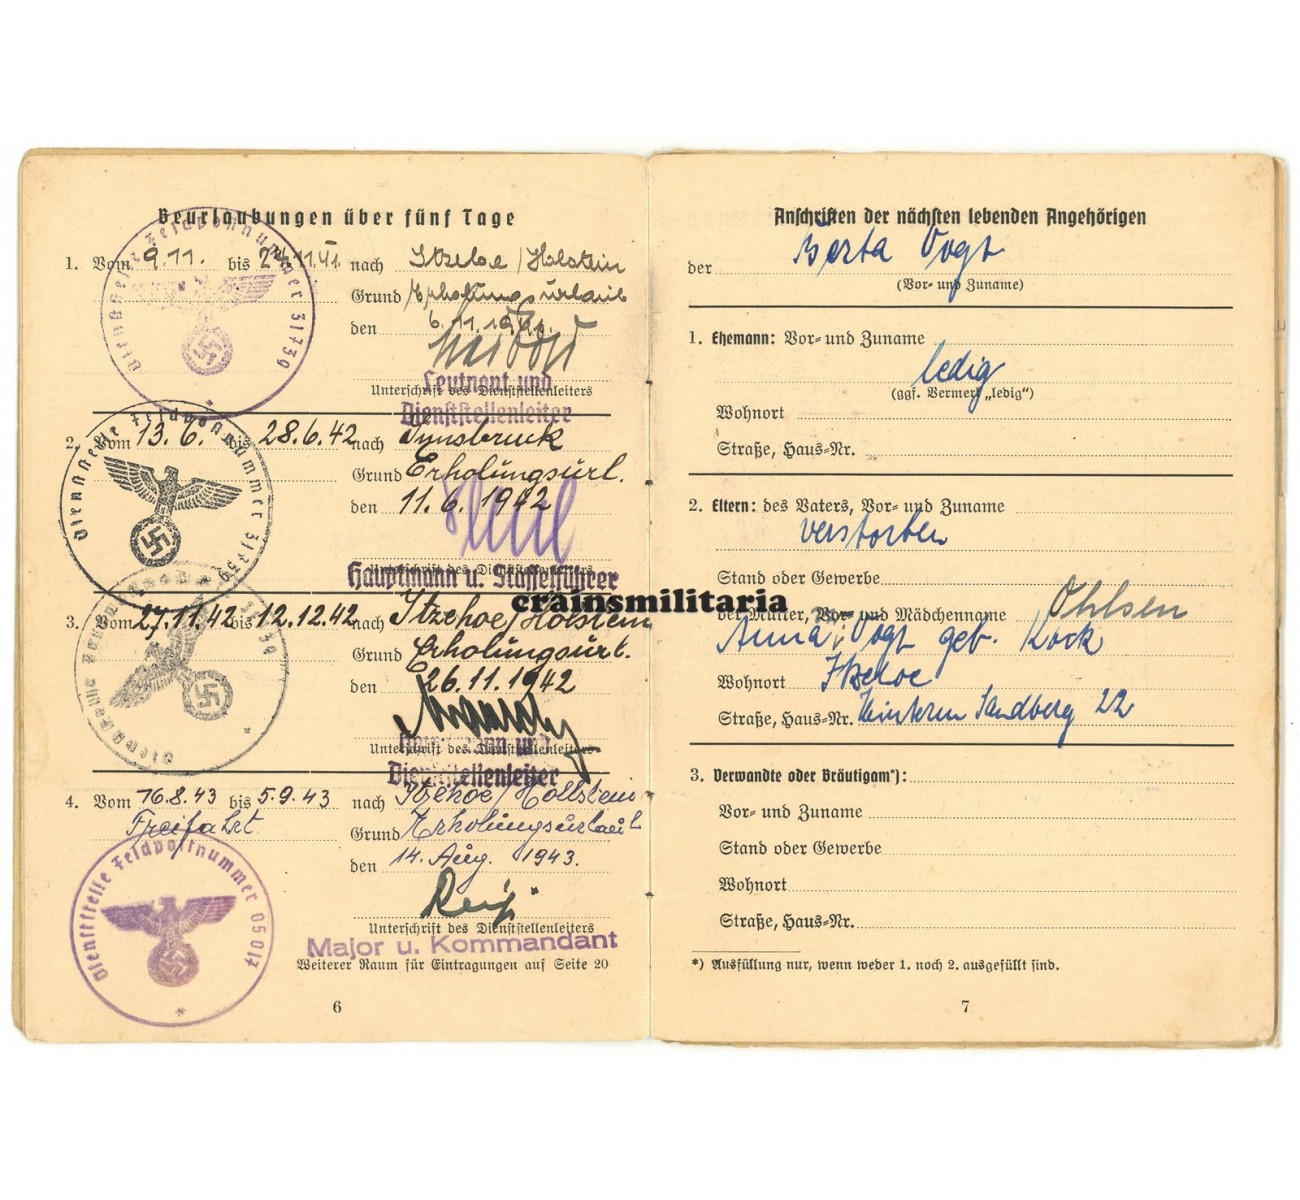 Beurlaubungen über fünf Tage
1. Vom 9.11. bis 24.11.41. nach Itzehoe/Holstein
Grund Erholungsurlaub
den 6.11.1941.
Unterschrift des Dienststellenleiters
Leutnant und
Dienststellenleiter
Dienststelle Feldpostnummer 31739
2. Vom 13.6. bis 28.6.42 nach Innsbruck
Grund Erholungsurl.
den 11.6.1942
Unterschrift des Dienststellenleiters
Hauptmann u. Staffelführer
Dienststelle Feldpostnummer 31739
3. Vom 27.11.42 bis 12.12.42 nach Itzehoe/Holstein
Grund Erholungsurl.
den 26.11.1942
Unterschrift des Dienststellenleiters
Hauptmann und
Dienststellenleiter
4. Vom 16.8.43 bis 5.9.43 nach Itzehoe/Hollstein
Freifahrt
Grund Erholungsurlaub
den 14. Aug. 1943.
Unterschrift des Dienststellenleiters
Major u. Kommandant
Dienststelle Feldpostnummer 05017
Weiterer Raum für Eintragungen auf Seite 20
6
crainsmilitaria
Anschriften der nächsten lebenden Angehörigen
der Berta Vogt
(Vor- und Zuname)
1. Ehemann: Vor- und Zuname
ledig
(ggf. Vermerk „ledig“)
Wohnort
Straße, Haus-Nr.
2. Eltern: des Vaters, Vor- und Zuname
verstorben
Stand oder Gewerbe
der Mutter, Vor- und Mädchenname Ohlsen
Anna Vogt geb. Kock
Wohnort Itzehoe
Straße, Haus-Nr. Hinterm Sandberg 22
3. Verwandte oder Bräutigam*):
Vor- und Zuname
Stand oder Gewerbe
Wohnort
Straße, Haus-Nr.
*) Ausfüllung nur, wenn weder 1. noch 2. ausgefüllt sind.
7